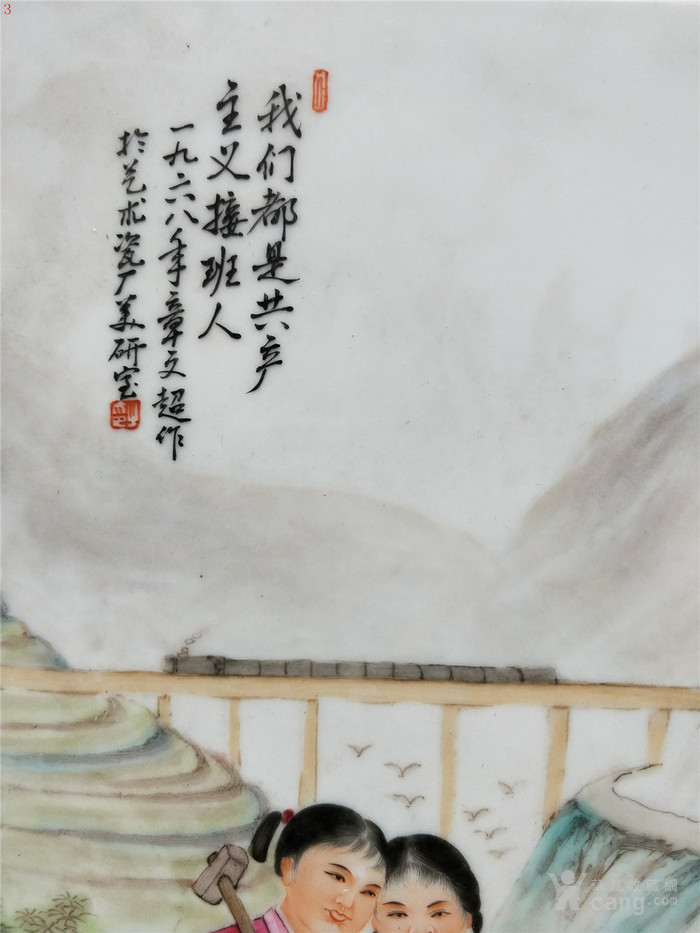 3
我们都是共产
主义接班人
一九六八年章文超作
於艺术瓷厂美研室
cang.com